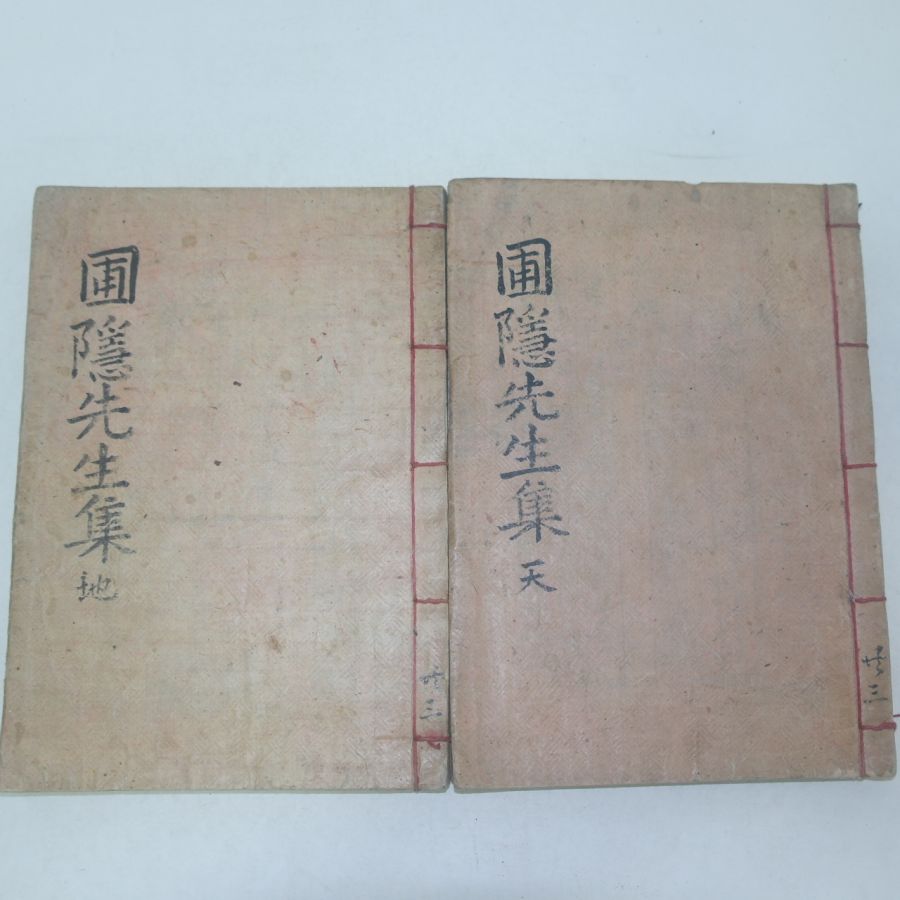 圃隱先生集 天
共三
圃隱先生集 地
共三